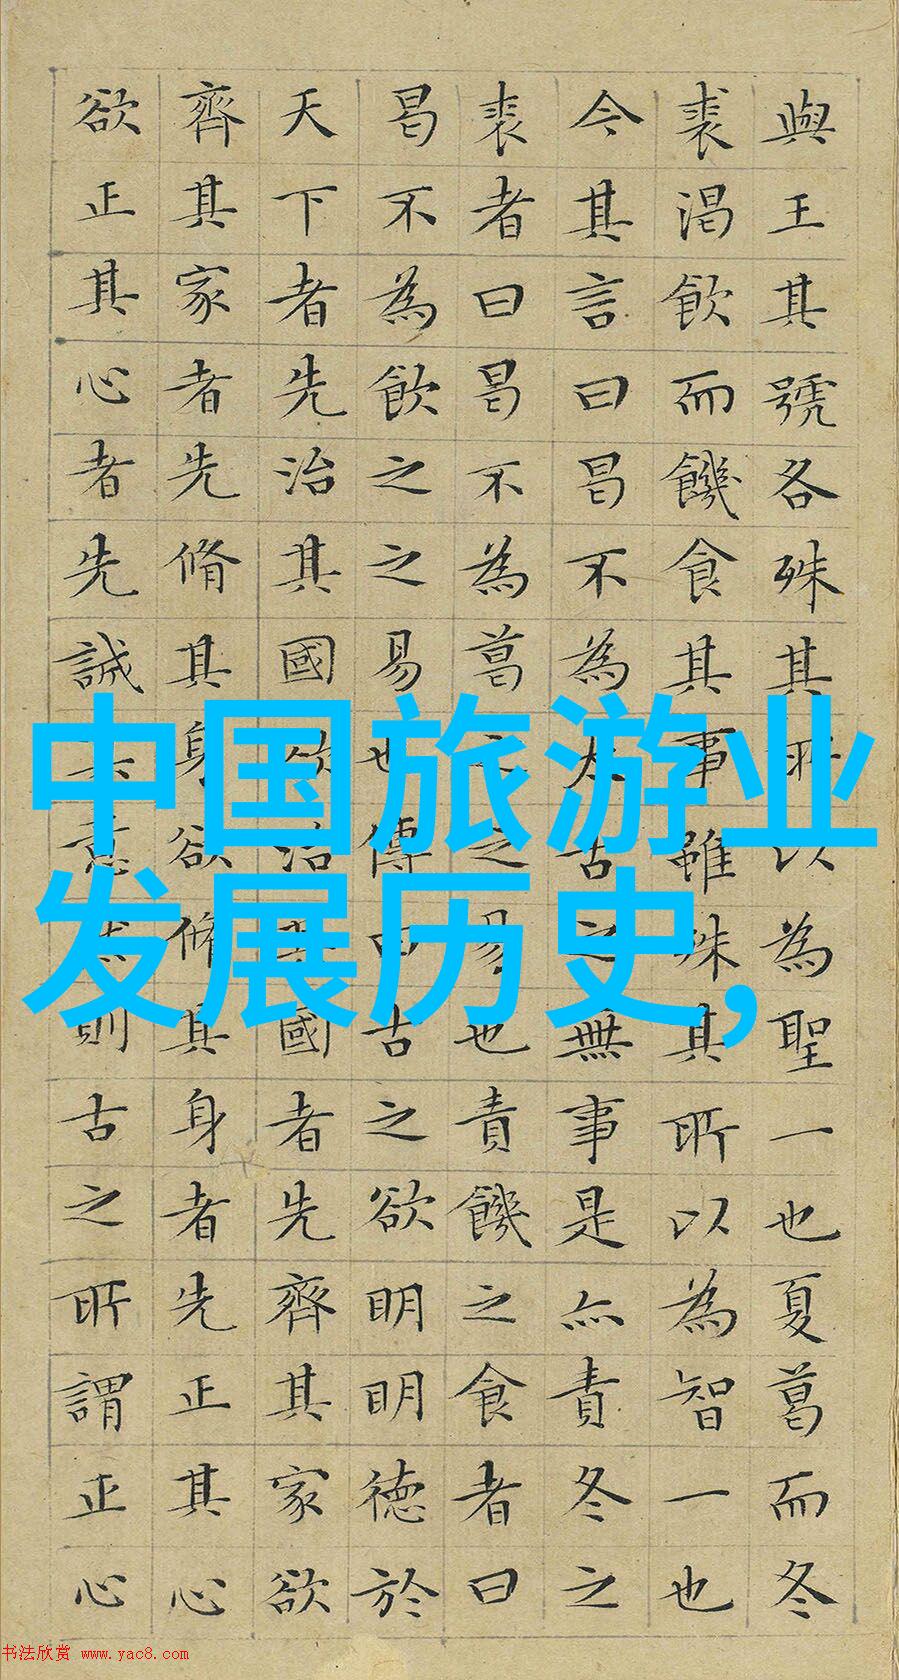 與王其號各殊其所以為聖一也夏葛而冬
裘渴飲而饑食其事雖殊其所以為智一也
今其言曰曷不為太古之無事是亦責冬之
裘者曰曷不為葛之之易也責饑之食者曰
曷不為飲之之易也傳曰古之欲明明德於
天下者先治其國欲治其國者先齊其家欲
齊其家者先脩其身欲脩其身者先正其心
欲正其心者先誠其意然則古之所謂正心
中国旅游业
发展历史,
书法欣赏 www.yac8.com